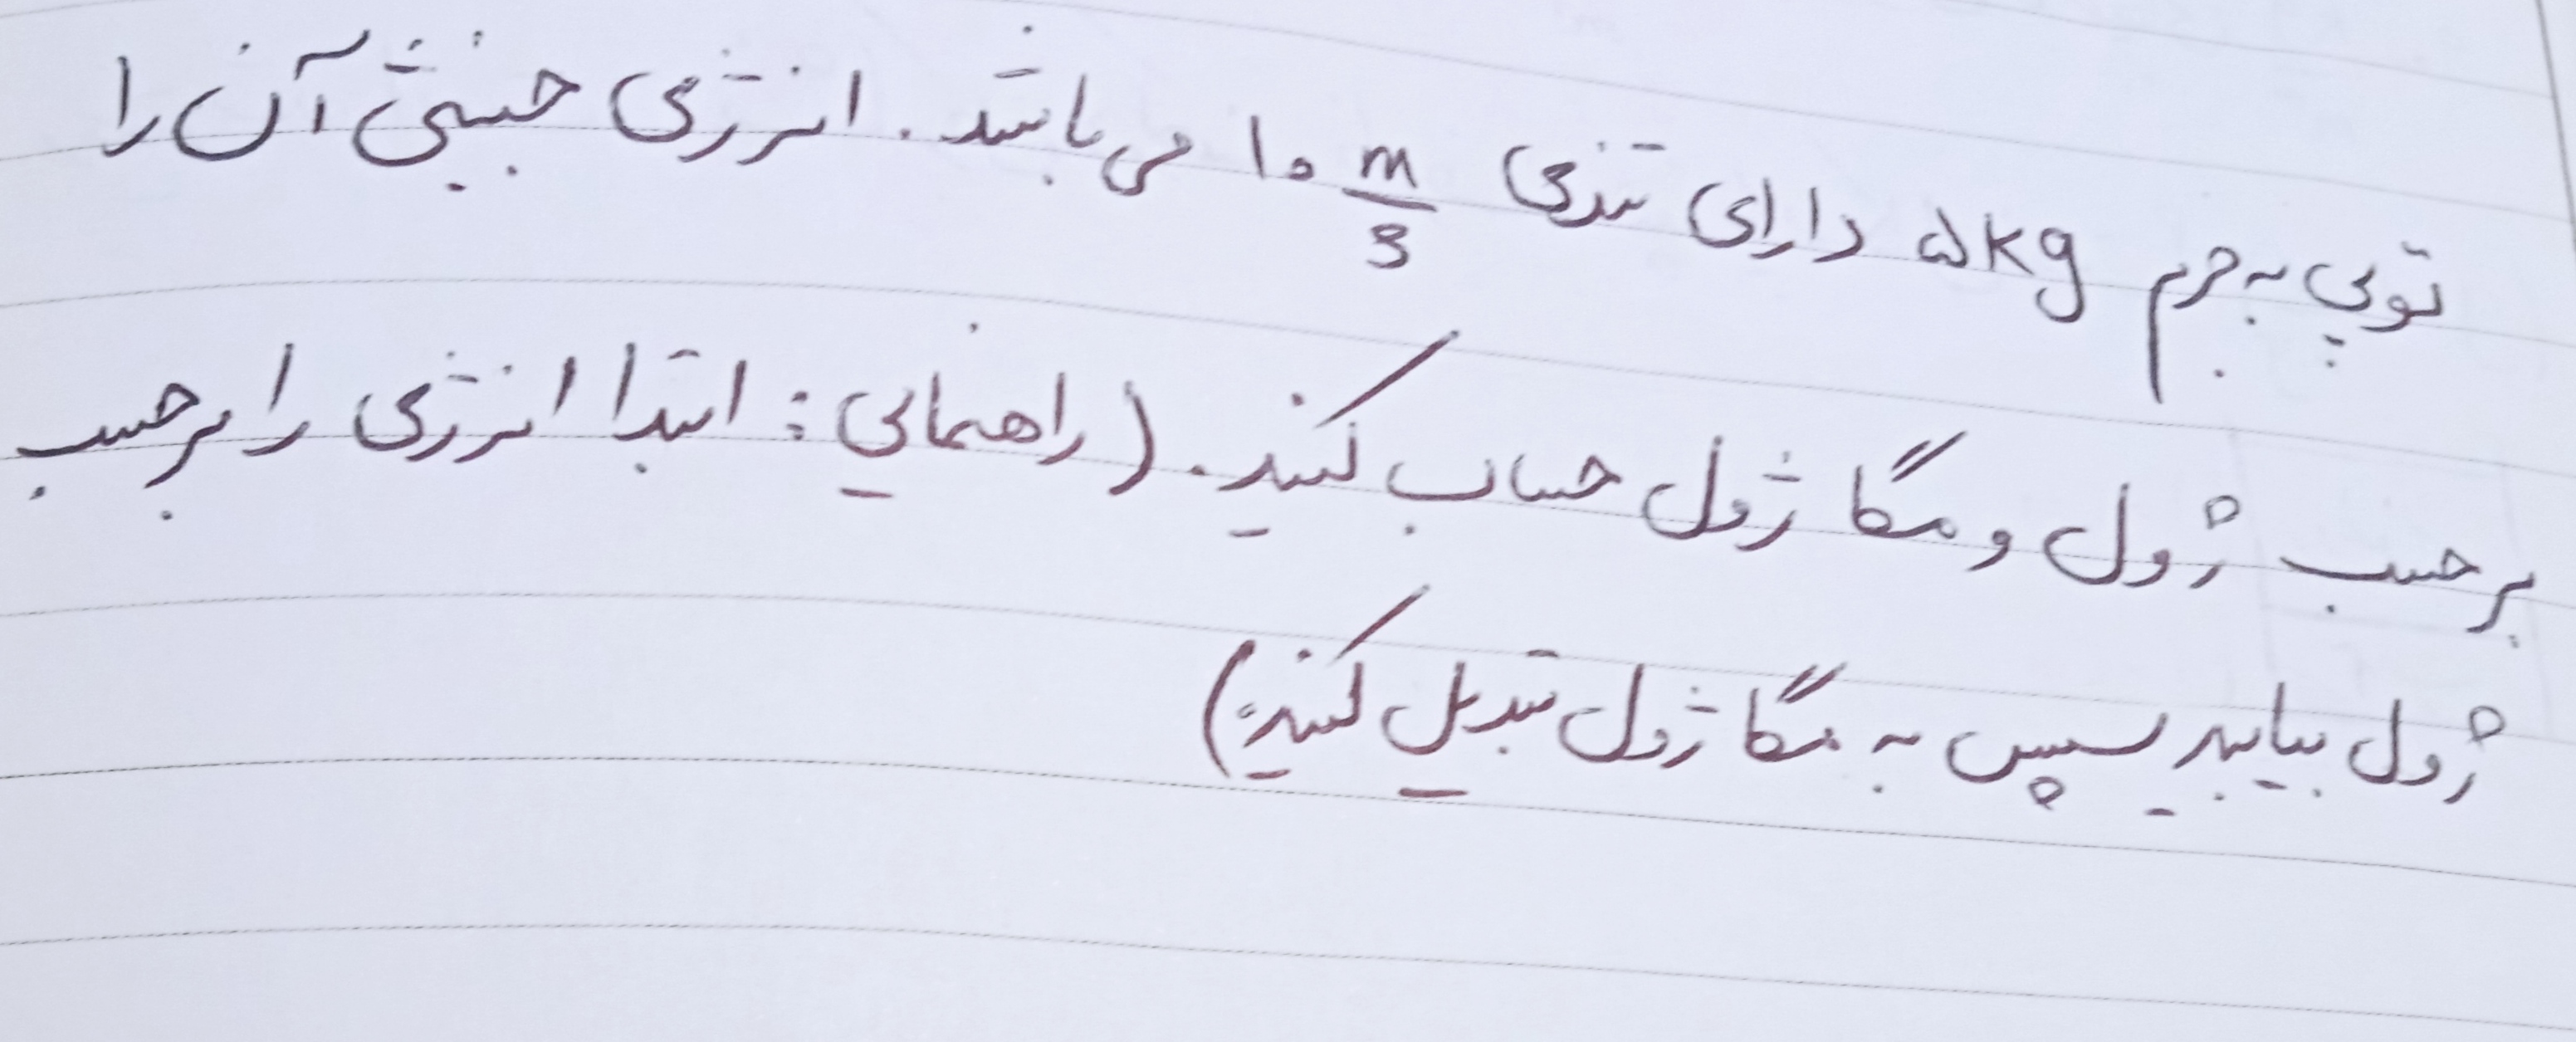 توپی به جرم ۵kg دارای تندی ۱۰ m/s می باشد. انرژی جنبشی آن را
برحسب ژول و مگا ژول حساب کنید. (راهنمایی: ابتدا انرژی را برحسب
ژول بیابید سپس به مگا ژول تبدیل کنید)